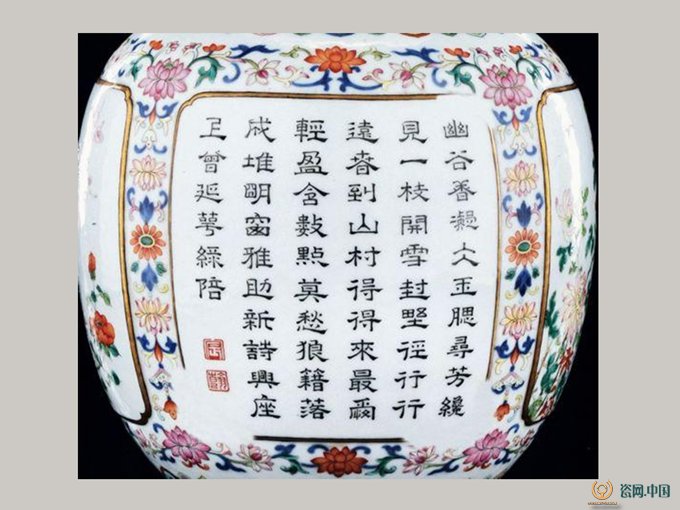 幽谷香凝大玉腮尋芳纔
見一枝開雪封野徑行行
遠春到山村得得來最
輕盈含數點莫愁狼籍落
成堆明窗雅助新詩興座
上曾延萼綠陪
宸
翰
瓷网.中国